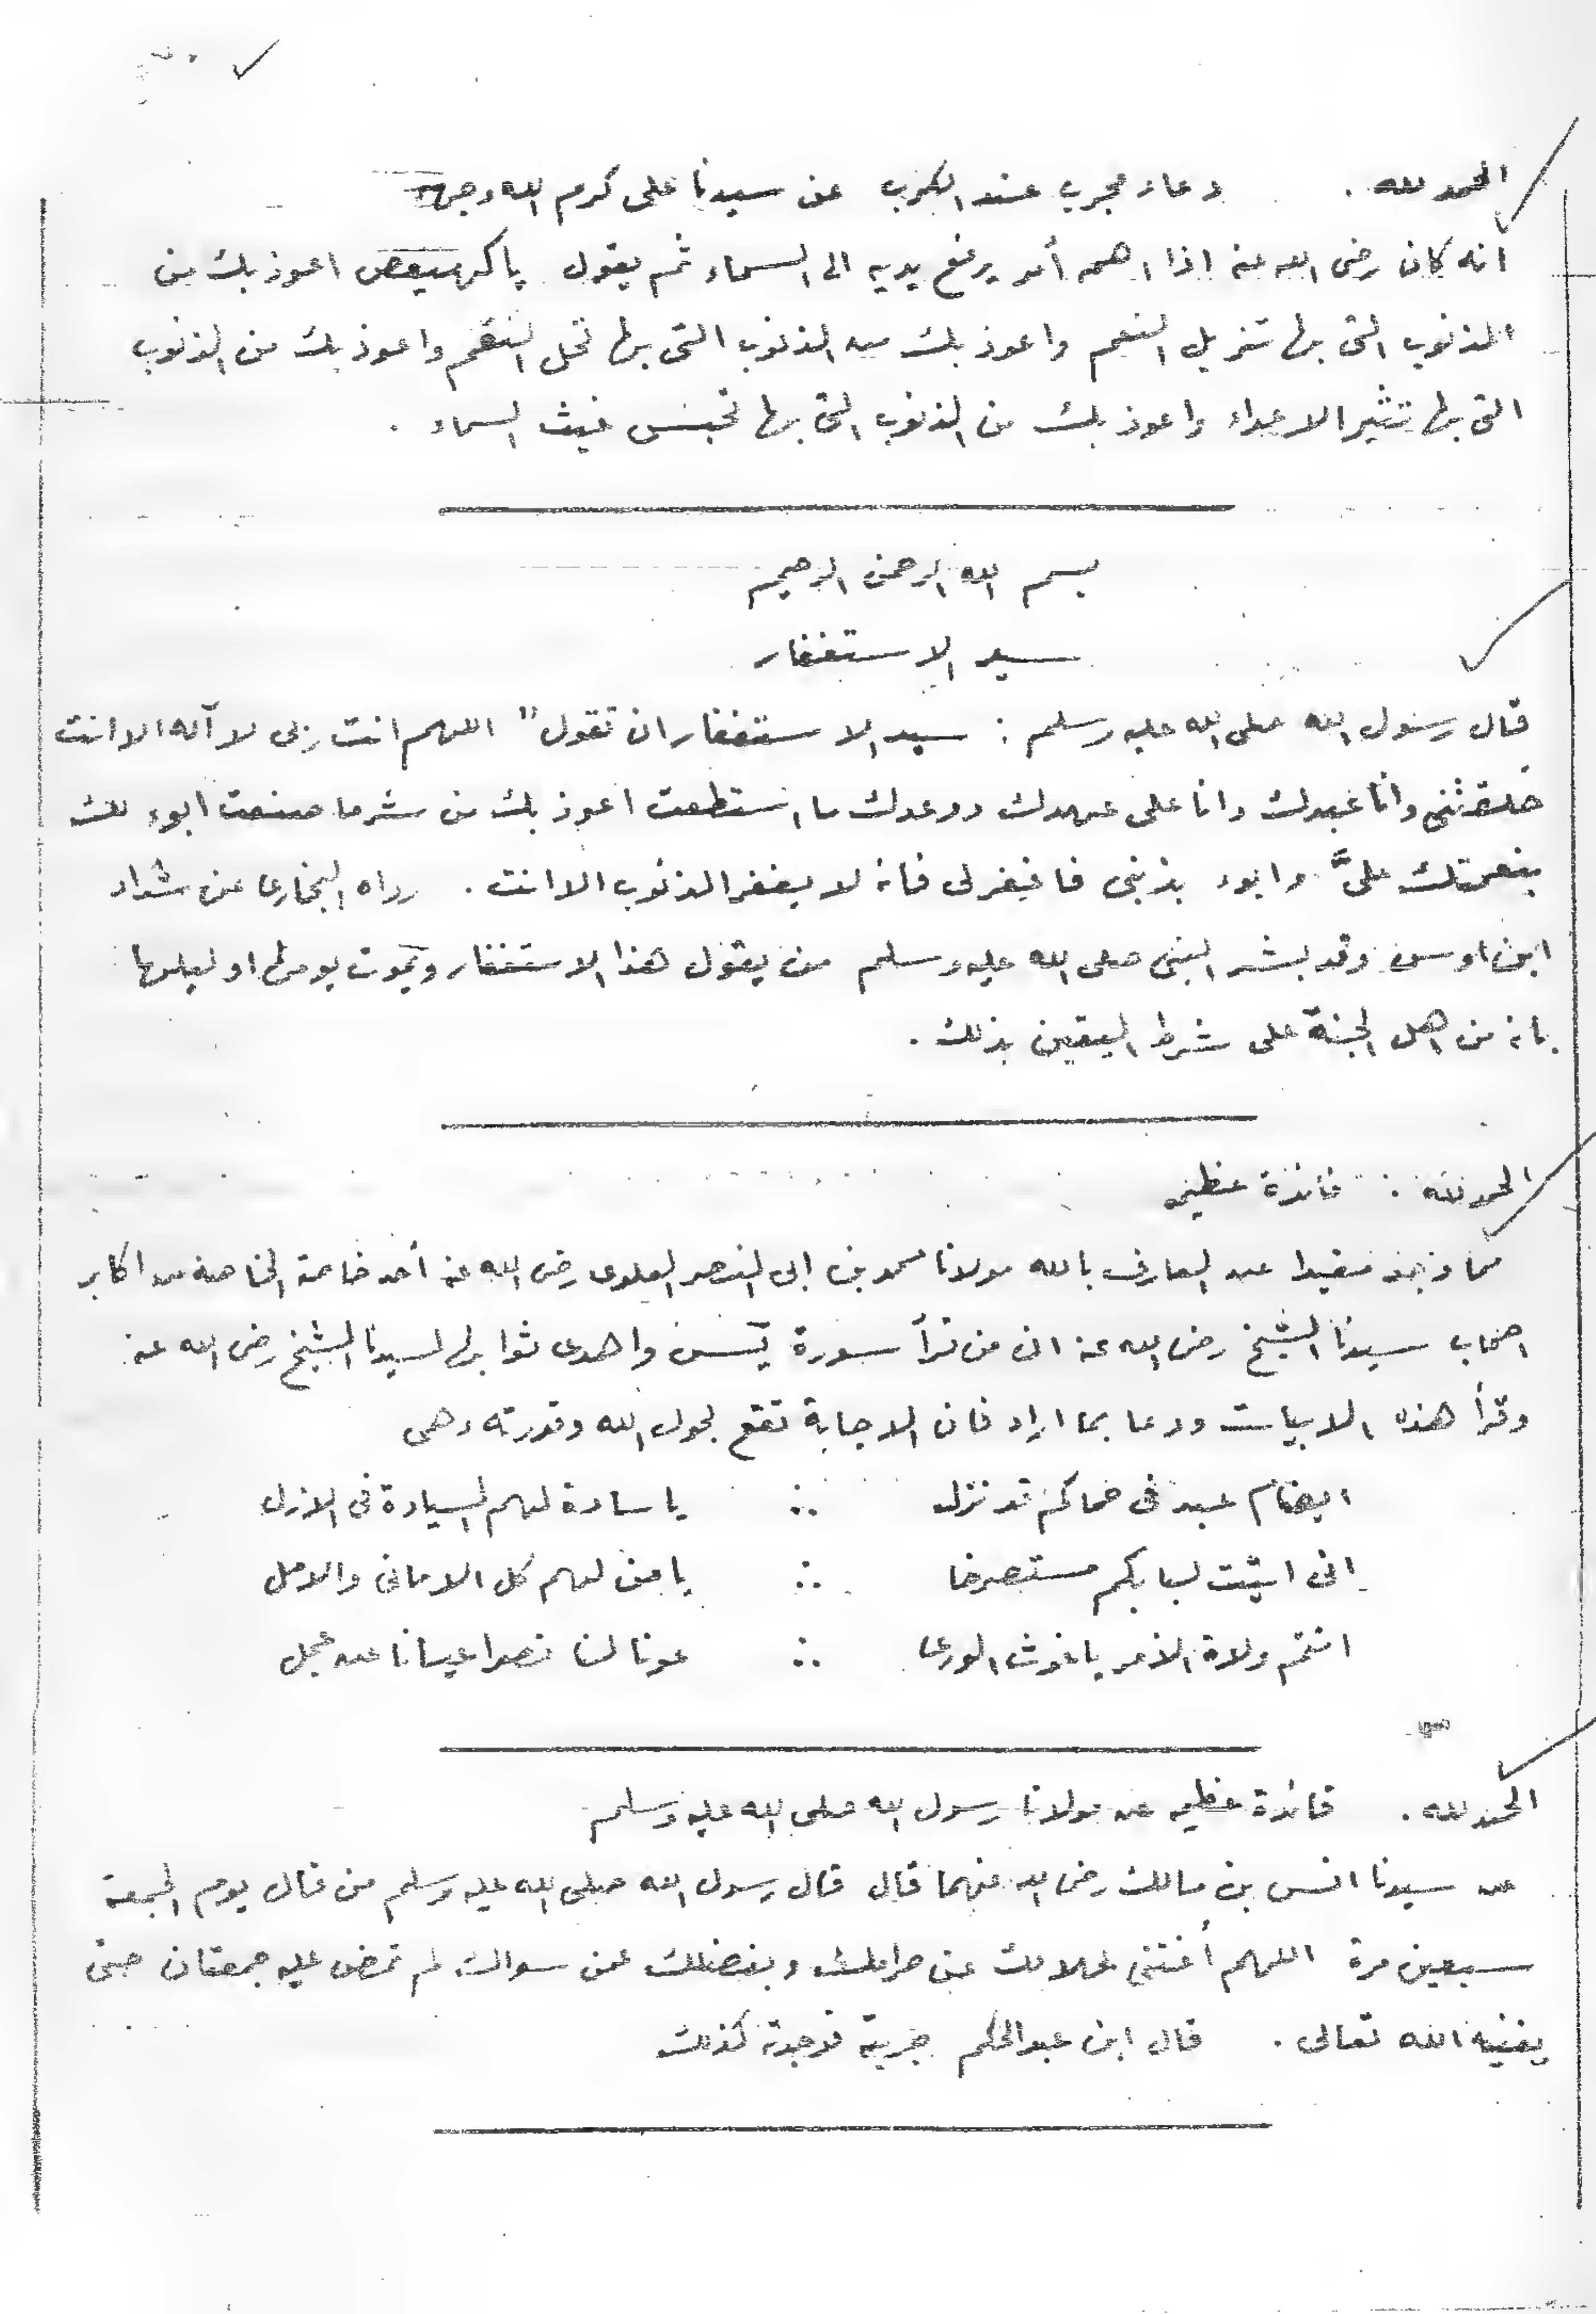 الحمد لله . دعاء مجرب عند الكرب عن سيدنا على كرم الله وجهه
أنه كان رضى الله عنه اذا اهمه أمر يرفع يديه الى السماء ثم يقول ياكهيعص اعوذ بك من
الذنوب التى بها تزيل النعم واعوذ بك من الذنوب التى بها تحل النقم واعوذ بك من الذنوب
التى بها تثير الاعداء واعوذ بك من الذنوب التى بها تحبس غيث السماء .
بسم الله الرحمن الرحيم
سيد الاستغفار
قال رسول الله صلى الله عليه وسلم : سيد الاستغفار ان تقول " اللهم انت ربى لا آله الا انت
خلقتنى وانا عبدك وانا على عهدك ووعدك ما استطعت اعوذ بك من شر ما صنعت ابوء لك
بنعمتك علىَّ وابوء بذنبى فاغفر لى فانه لا يغفر الذنوب الا انت . رواه البخارى عن شداد
ابن اوس وقد بشر النبى صلى الله عليه وسلم من يقول هذا الاستغفار ويموت يومها او ليلها
بانه من اهل الجنة على شرط اليقين بذلك .
الحمد لله : فائدة عظيمه
مما وجد مقيدا عن العارف بالله مولانا محمد بن ابى النصر العلوى رضى الله عنه أحد خاصة الخاصة من اكابر
اصحاب سيدنا الشيخ رضى الله عنه ان من قرأ سورة يس واهدى ثوابها لسيدنا الشيخ رضى الله عنه
وقرأ هذه الابيات ودعا بما اراد فان الاجابة تقع بحول الله وقدرته وهى
ايضام عبد فى حماكم قد نزل ∴ يا سادة لهم السيادة فى الازل
انى اتيت لبابكم مستصرخا ∴ يا من لهم كل الامانى والامل
انتم ولاة الامر يا غوث الورى ∴ عونا لنا نصرا عيانا عن عجل
الحمد لله . فائدة عظيمه عن مولانا رسول الله صلى الله عليه وسلم
عن سيدنا انس بن مالك رضى الله عنهما قال قال رسول الله صلى الله عليه وسلم من قال يوم الجمعة
سبعين مرة اللهم أغننى بحلالك عن حرامك وبفضلك عمن سواك لم تمض عليه جمعتان حتى
يغنيه الله تعالى . قال ابن عبد الحكم جربته فوجدته كذلك